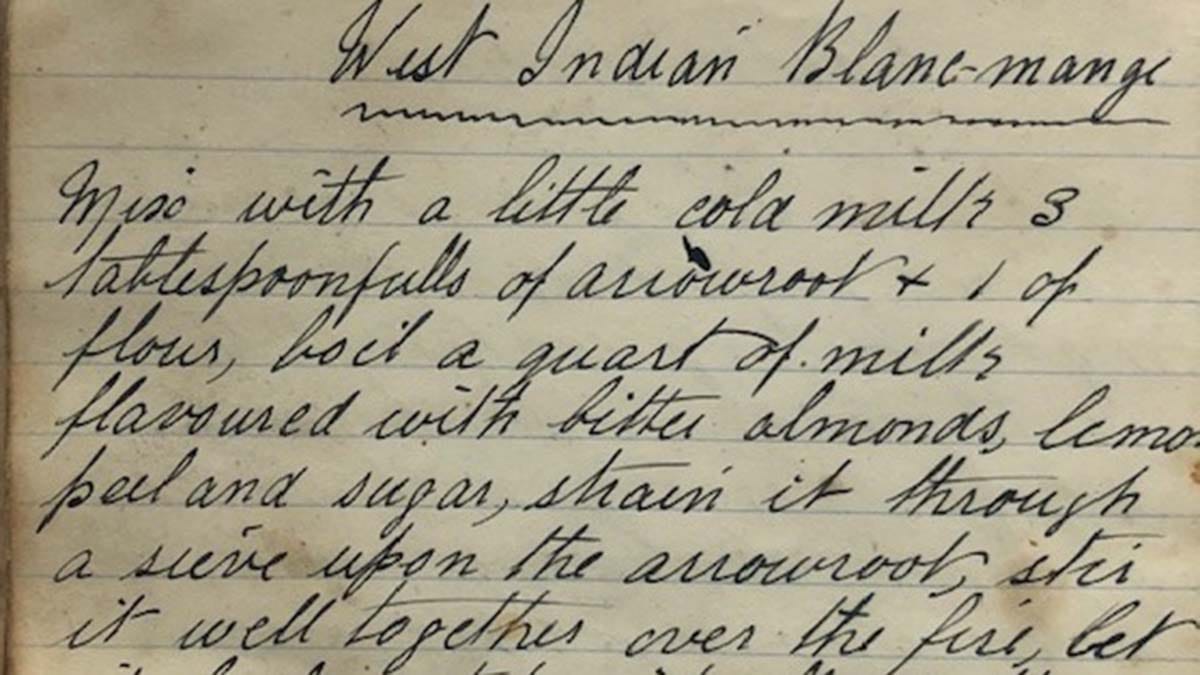 West Indian Blanc-mange
Mix with a little cold milk 3
tablespoonfulls of arrowroot + 1 of
flour, boil a quart of milk
flavoured with bitter almonds, lemon
peel and sugar, strain it through
a sieve upon the arrowroot, stir
it well together over the fire, let